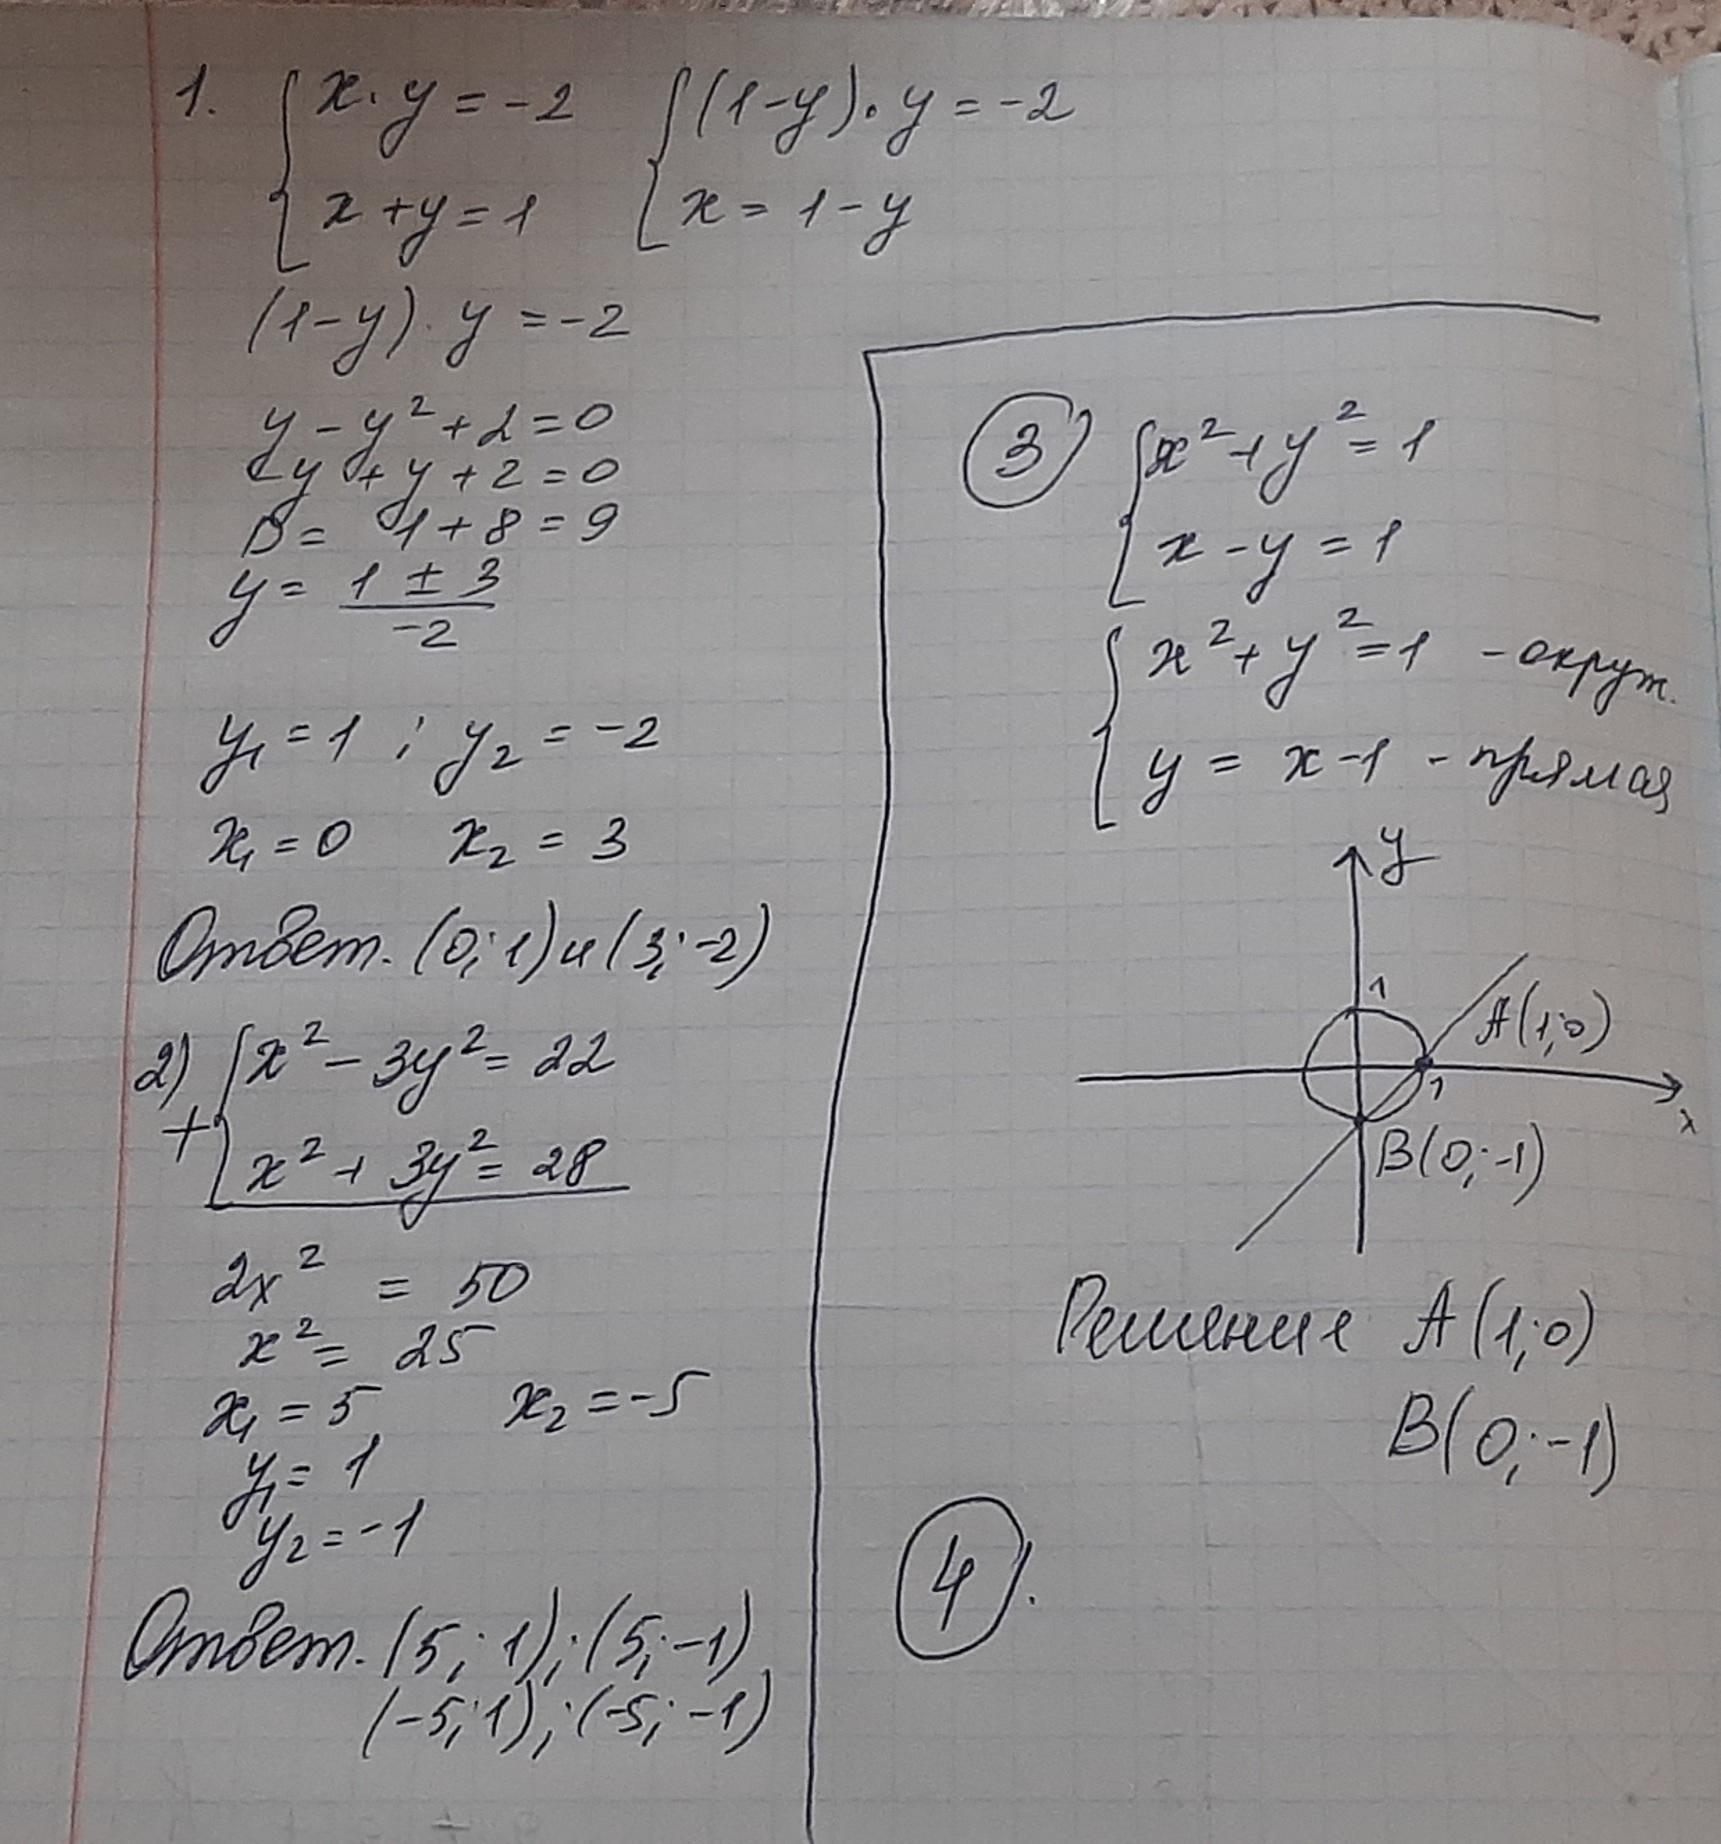 1. { x · y = -2 { (1-y) · y = -2
x + y = 1 x = 1 - y
(1-y) · y = -2
y - y² + 2 = 0
-y + y + 2 = 0
D = 1 + 8 = 9
y = 1 ± 3
-2
y₁ = 1 ; y₂ = -2
x₁ = 0 x₂ = 3
Ответ. (0; 1) и (3; -2)
2) { x² - 3y² = 22
+ x² + 3y² = 28
2x² = 50
x² = 25
x₁ = 5 x₂ = -5
y₁ = 1
y₂ = -1
Ответ. (5; 1); (5; -1)
(-5; 1); (-5; -1)
3 { x² + y² = 1
x - y = 1
{ x² + y² = 1 - окруж.
y = x - 1 - прямая
y
1
A(1; 0)
1
x
B(0; -1)
Решение A(1; 0)
B(0; -1)
4.